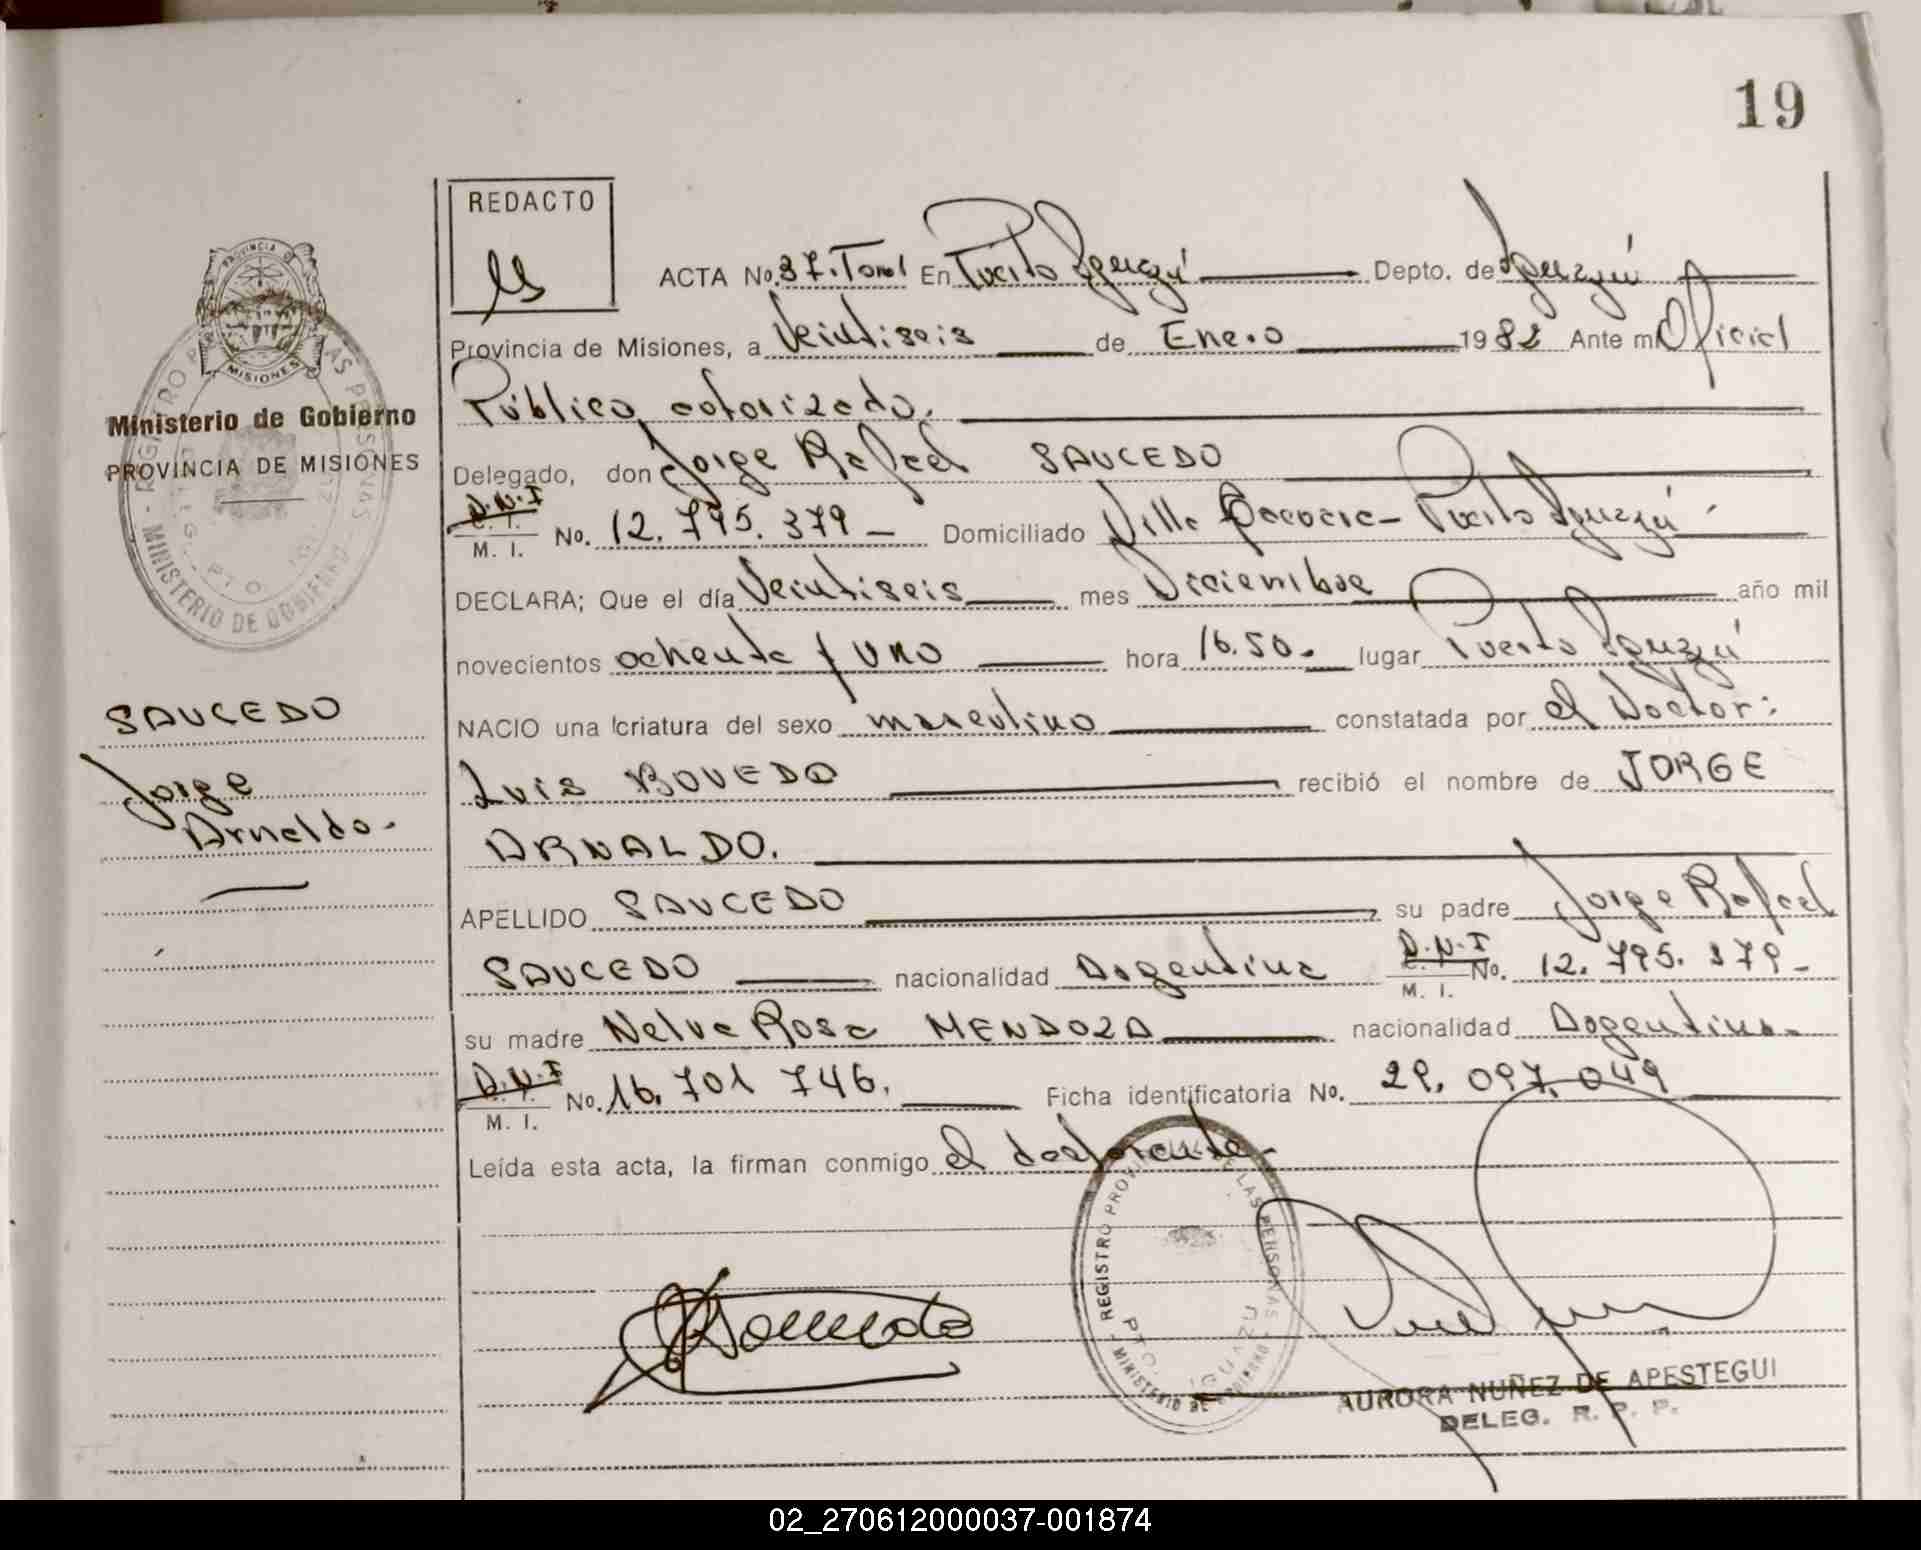 19
REDACTO
ACTA No. 37. Tomo I En Puerto Iguazú Depto. de Iguazú
Provincia de Misiones, a Veintiseis de Enero 1982 Ante mi Oficial
Público autorizado.
Delegado, don Jorge Rafael SAUCEDO
D.N.I
C. I.
M. I. No. 12.795.379 - Domiciliado Villa - Puerto Iguazú -
DECLARA; Que el día Veintiseis mes Diciembre año mil
novecientos ochenta y uno hora 16.50. lugar Puerto Iguazú
NACIO una criatura del sexo masculino constatada por el Doctor:
Luis BOVEDA recibió el nombre de JORGE
ARNALDO.
APELLIDO SAUCEDO su padre Jorge Rafael
SAUCEDO nacionalidad Argentina D.N.I No. 12.795.379 -
M. I.
su madre Nelva Rosa MENDOZA nacionalidad Argentina.
D.N.I No. 16.701 746. Ficha identificatoria No. 29.097.049
M. I.
Leída esta acta, la firman conmigo el declarante.
PROVINCIA DE
MISIONES
Ministerio de Gobierno
PROVINCIA DE MISIONES
SAUCEDO
Jorge
Arnaldo.
REGISTRO PROVINCIAL DE LAS PERSONAS
MINISTERIO DE GOBIERNO
PTO. IGUAZU
AURORA NUÑEZ DE APESTEGUI
DELEG. R. P. P.
02_270612000037-001874